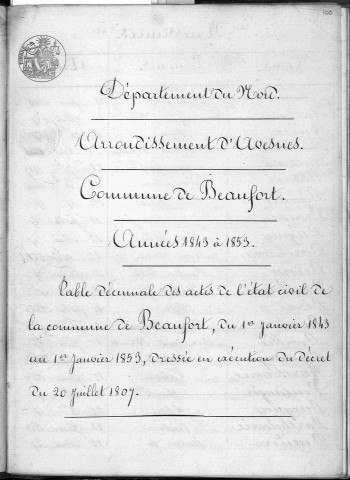 Département du Nord.
Arrondissement d'Avesnes.
Commune de Beaufort.
Années 1843 à 1853.
Table décennale des actes de l'état civil de
la commune de Beaufort, du 1er Janvier 1843
au 1er Janvier 1853, dressée en exécution du décret
du 20 Juillet 1807.